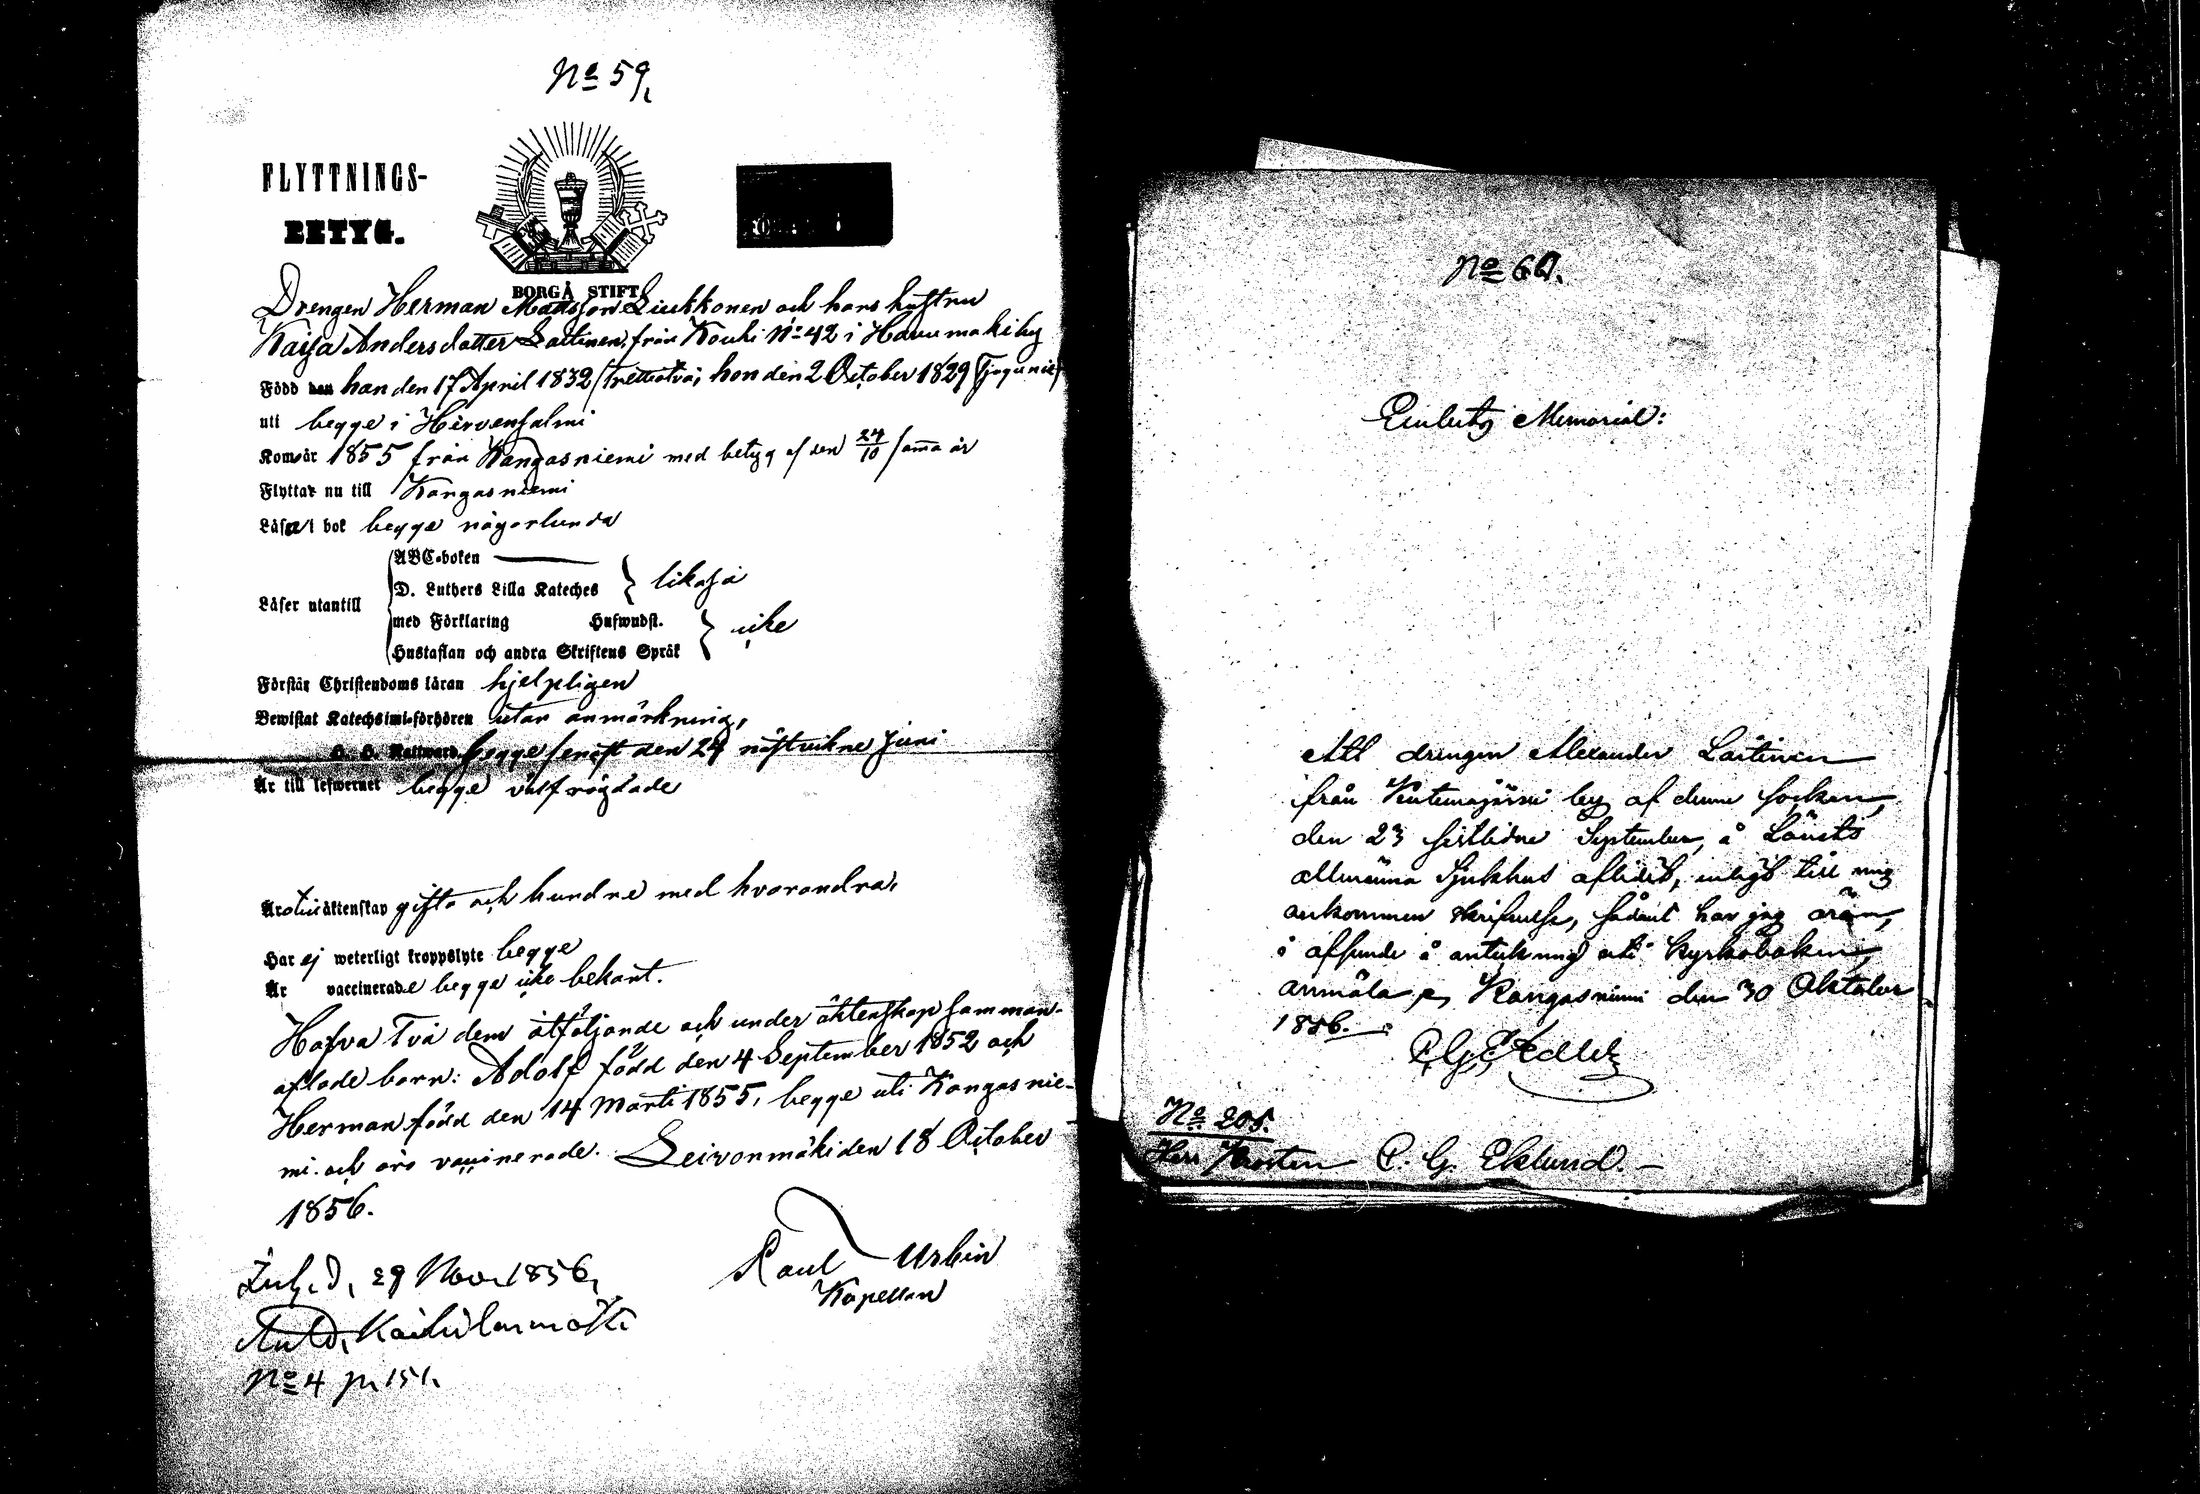 No 59,
FLYTTNINGS-
BETYG.
BORGÅ STIFT
Drengen Herman Mattsson Liukkonen och hans hustru
Kaisa Andersdotter Laitinen, från Kouhi No 42 i Havumäki by
Född han den 17 April 1832 (trettiotvå; hon den 2 October 1829 (tjugunie)
uti begge i Hirvensalmi
Kom år 1855 från Kangasniemi med betyg af den 24/10 samma år
Flyttar nu till Kangasniemi
Läsa i bok begge någorlunda
ABC-boken
D. Luthers Lilla Kateches likaså
Läser utantill
med Förklaring Hufwudst. icke
Hustaflan och andra Skriftens Språk
Förstår Christendoms läran hjelpligen
Bewistat Katechismi-förhören utan anmärkning,
H. H. Nattward begge senast den 24 nästvikne Juni
Är till lefwernet begge välfrägdade
Äro till äktenskap gifta och bundne med hvarandra,
Har ej weterligt kroppslyte begge
Är vaccinerade begge icke bekant.
Hafva Två dem åtföljande och under äktenskap samman-
aflade barn: Adolf född den 4 September 1852 och
Herman född den 14 Marti 1855, begge uti Kangasnie-
mi och äro vaccinerade. Leivonmäki den 18 October
1856.
Paul Urbin
Kapellan
29 Nov. 1856,
No 4 p. 151.
No 60.
Embets Memorial:
Att drengen Alexander Laitinen
från by af denne socken,
den 23 sistlidne September, å Länets
allmänna Sjukhus aflidit, enligt till mig
ankommen skrifvelse, sådant har jag äran,
i afseende å anteckning uti Kyrkoboken,
anmäla Kangasniemi den 30 Oktober
1856.
No 205.
Herr Prosten P. G. Eklund.